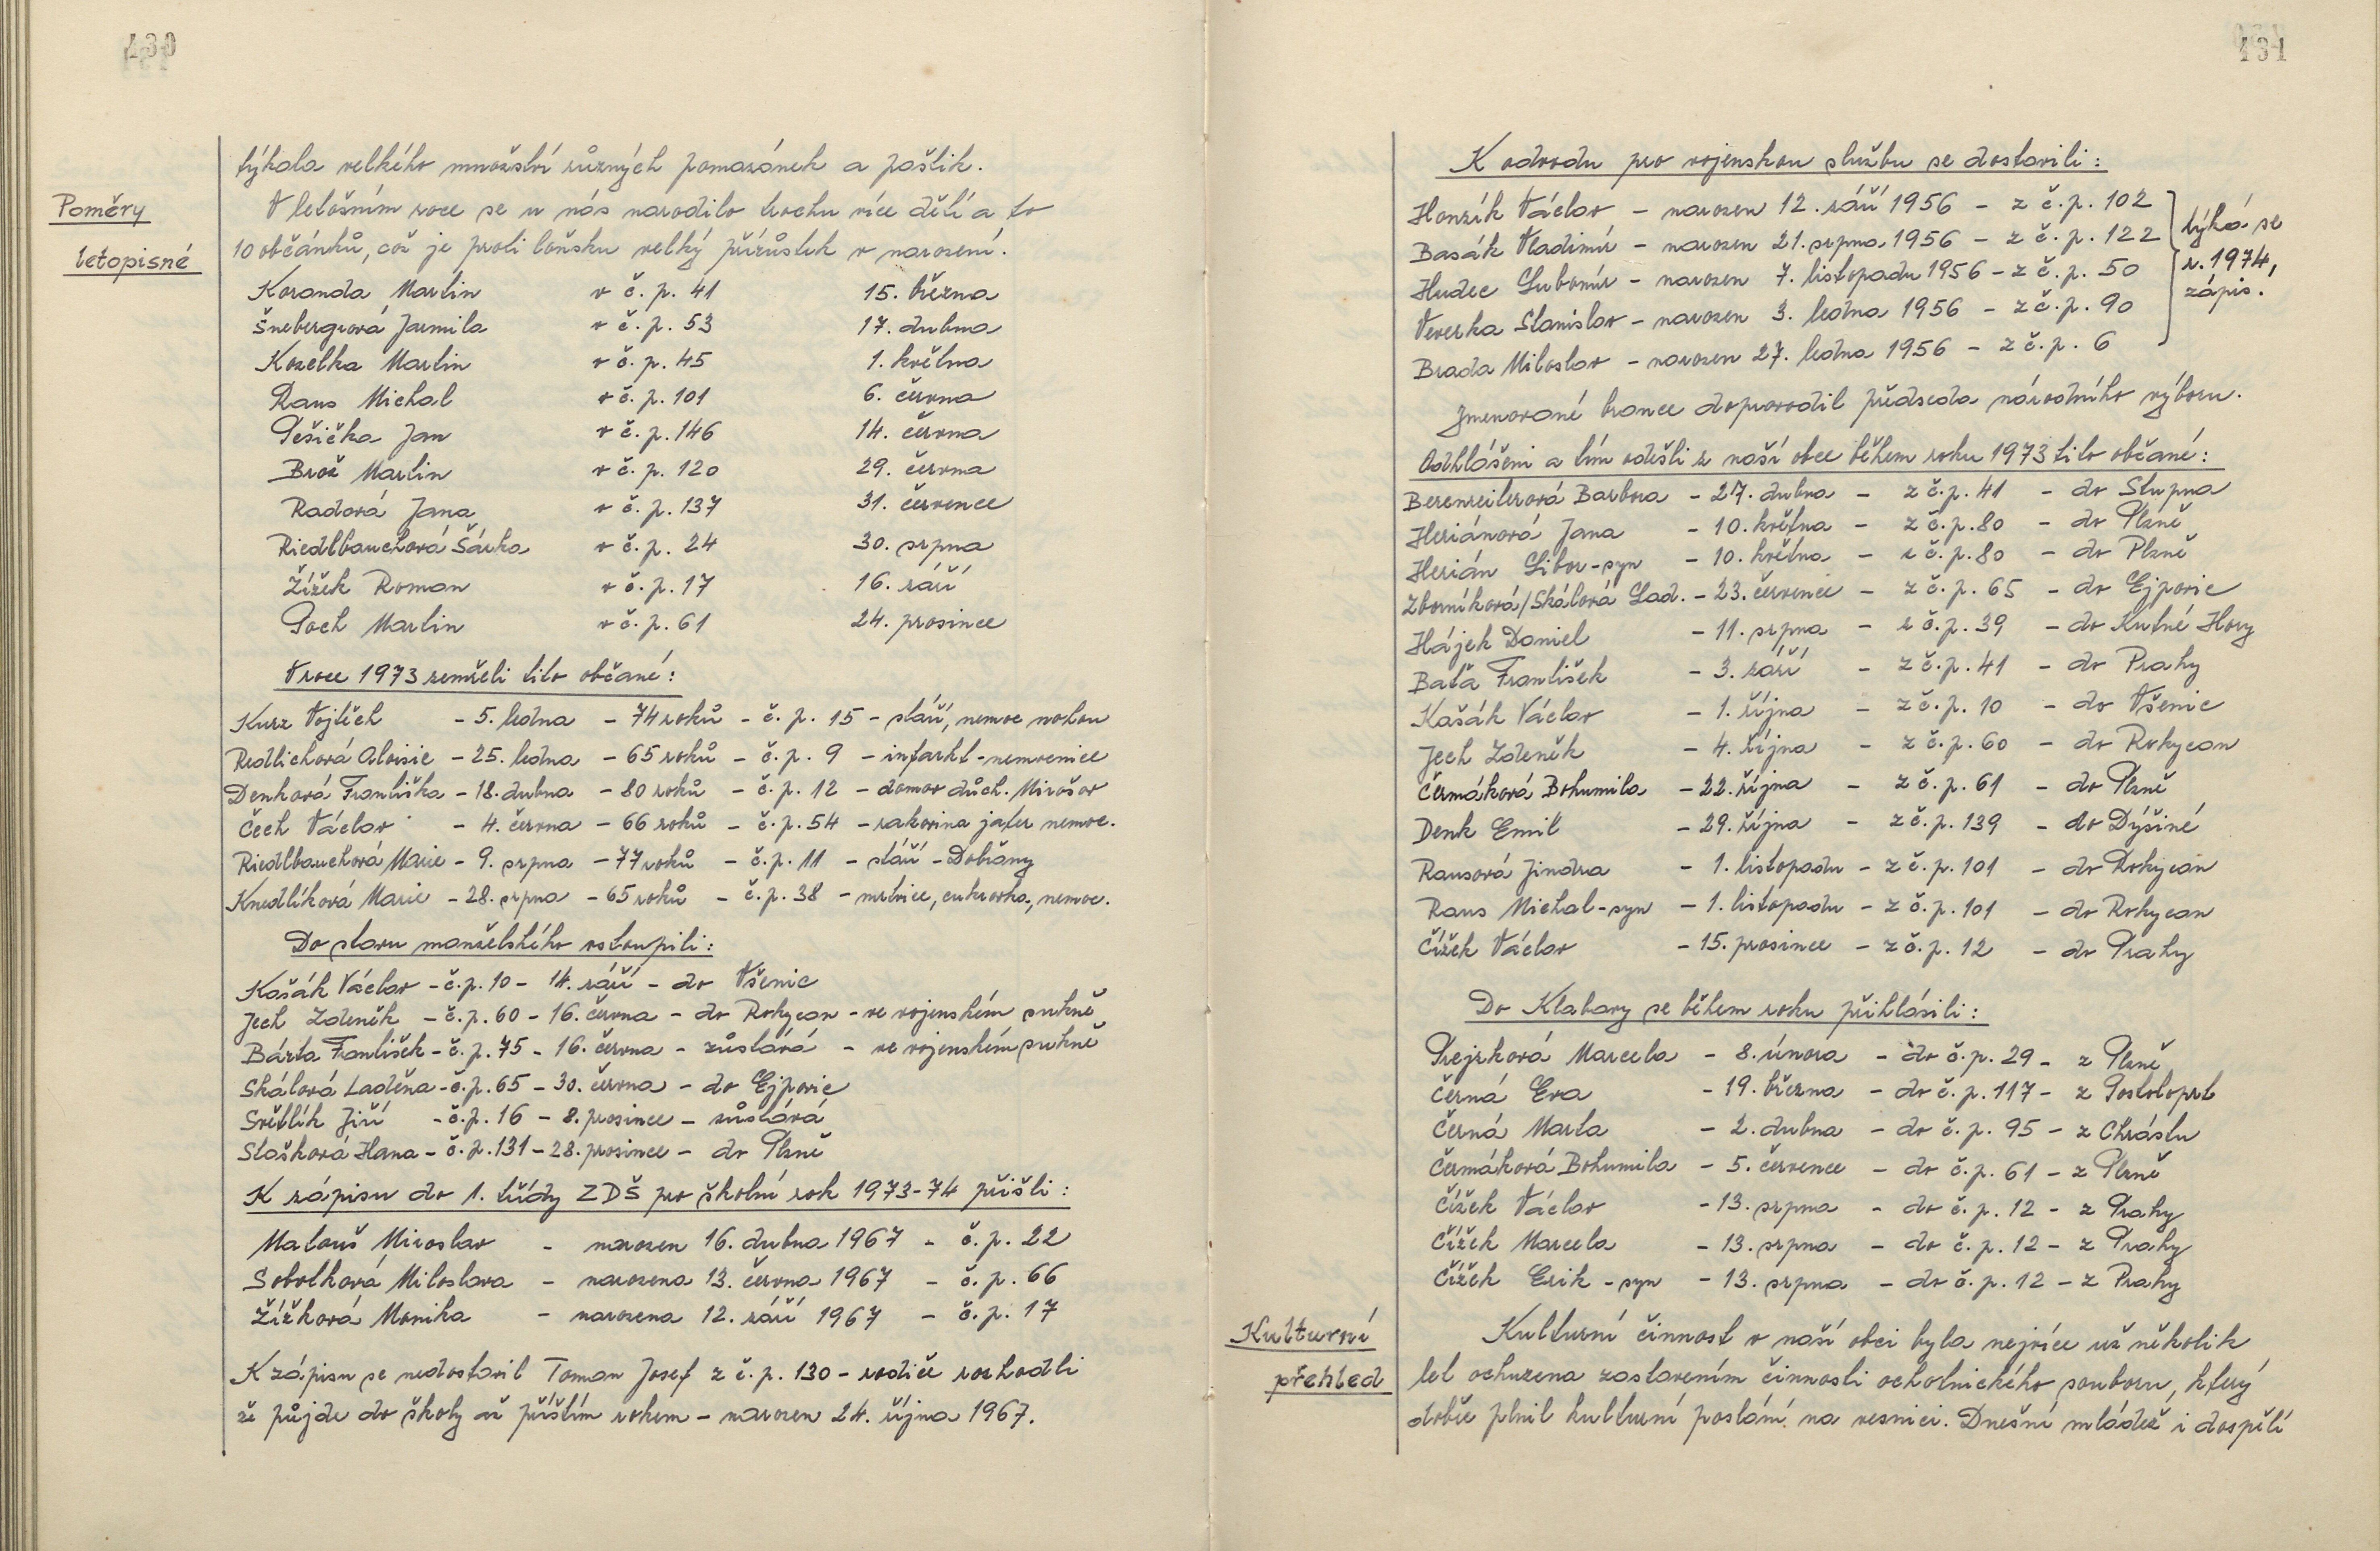 430
týkala velkého množství různých pomazánek a paštik.
Poměry
letopisné
V letošním roce se u nás narodilo trochu více dětí a to
10 občánků, což je proti loňsku velký přírůstek v narození.
Koranda Martin v č. p. 41 15. března
Šnebergrová Jarmila v č. p. 53 17. dubna
Kozelka Martin v č. p. 45 1. května
Raus Michal v č. p. 101 6. června
Pešička Jan v č. p. 146 14. června
Brož Martin v č. p. 120 29. června
Radová Jana v č. p. 137 31. července
Riedlbauchová Šárka v č. p. 24 30. srpna
Žížek Roman v č. p. 17 16. září
Poch Martin v č. p. 61 24. prosince
V roce 1973 zemřeli tito občané:
Kurz Vojtěch - 5. ledna - 74 roků - č. p. 15 - stáří, nemoc nohou
Redlichová Aloisie - 25. ledna - 65 roků - č. p. 9 - infarkt - nemocnice
Denková Františka - 18. dubna - 80 roků - č. p. 12 - domov důch. Mirošov
Čech Václav - 4. června - 66 roků - č. p. 54 - rakovina jater nemoc.
Riedlbauchová Marie - 9. srpna - 77 roků - č. p. 11 - stáří - Dobřany
Knedlíková Marie - 28. srpna - 65 roků - č. p. 38 - mrtvice, cukrovka, nemoc.
Do stavu manželského vstoupili:
Košák Václav - č. p. 10 - 14. září - do Všenic
Jech Zdeněk - č. p. 60 - 16. června - do Rokycan - ve vojenském sukně
Bárta František - č. p. 75 - 16. června - zůstává - ve vojenském sukně
Skálová Laděna - č. p. 65 - 30. června - do Ejpovic
Světlík Jiří - č. p. 16 - 8. prosince - zůstává
Stašková Hana - č. p. 131 - 28. prosince - do Plzně
K zápisu do 1. třídy ZDŠ pro školní rok 1973-74 přišli:
Matouš Miroslav - narozen 16. dubna 1967 - č. p. 22
Sobotková Miloslava - narozena 13. června 1967 - č. p. 66
Žížková Monika - narozena 12. září 1967 - č. p. 17
K zápisu se nedostavil Toman Josef z č. p. 130 - rodiče rozhodli
že půjde do školy až příštím rokem - narozen 24. října 1967.
431
K odvodu pro vojenskou službu se dostavili:
Honzík Václav - narozen 12. září 1956 - z č. p. 102
Basák Vladimír - narozen 21. srpna 1956 - z č. p. 122
Hudec Lubomír - narozen 7. listopadu 1956 - z č. p. 50
Veverka Stanislav - narozen 3. ledna 1956 - z č. p. 90
Brada Miloslav - narozen 27. ledna 1956 - z č. p. 6
týká se
r. 1974,
zápis!
Jmenované brance doprovodil předseda národního výboru.
Odhlášeni a tím odešli z naší obce během roku 1973 tito občané:
Berenreiterová Barbora - 27. dubna - z č. p. 41 - do Stupna
Heriánová Jana - 10. května - z č. p. 80 - do Plzně
Herián Libor - syn - 10. května - z č. p. 80 - do Plzně
Zborníková/Skálová Lad. - 23. července - z č. p. 65 - do Ejpovic
Hájek Daniel - 11. srpna - z č. p. 39 - do Kutné Hory
Baťa František - 3. září - z č. p. 41 - do Prahy
Košák Václav - 1. října - z č. p. 10 - do Všenic
Jech Zdeněk - 4. října - z č. p. 60 - do Rokycan
Čermáková Bohumila - 22. října - z č. p. 61 - do Plzně
Denk Emil - 29. října - z č. p. 139 - do Dýšiné
Rausová Jindra - 1. listopadu - z č. p. 101 - do Rokycan
Raus Michal - syn - 1. listopadu - z č. p. 101 - do Rokycan
Čížek Václav - 15. prosince - z č. p. 12 - do Prahy
Do Klabavy se během roku přihlásili:
Prejzková Marcela - 8. února - do č. p. 29 - z Plzně
Černá Eva - 19. března - do č. p. 117 - z Postoloprt
Černá Marta - 2. dubna - do č. p. 95 - z Chrástu
Čermáková Bohumila - 5. července - do č. p. 61 - z Plzně
Čížek Václav - 13. srpna - do č. p. 12 - z Prahy
Čížek Marcela - 13. srpna - do č. p. 12 - z Prahy
Čížek Erik - syn - 13. srpna - do č. p. 12 - z Prahy
Kulturní
přehled
Kulturní činnost v naší obci byla nejvíce už několik
let ochuzena zastavením činnosti ochotnického souboru, který
dobře plnil kulturní poslání na vesnici. Dnešní mládež i dospělí